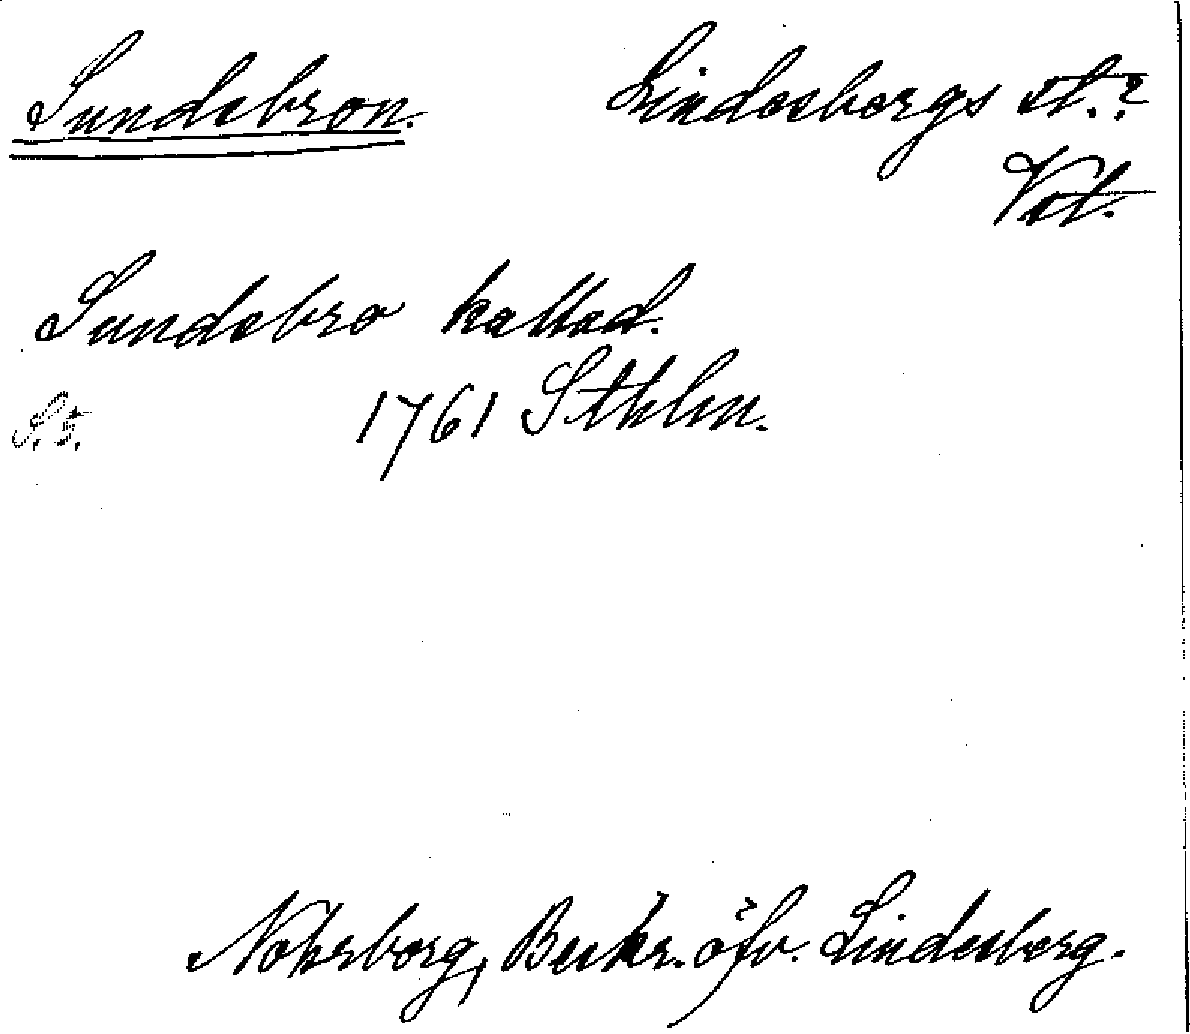 Sundebron. Lindesbergs st.?
Vstl.
Sundebro kallad.
S. 5. 1761 Sthlm.
Nohrborg, Beskr. öfv. Lindesberg.